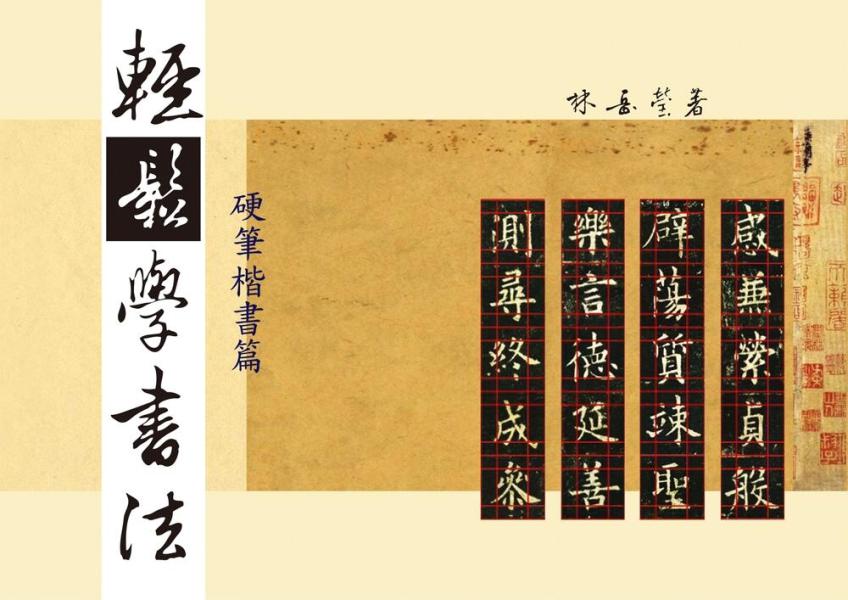 輕鬆學書法
硬筆楷書篇
林岳瑩著
感兼縈貞般
辟蕩質竦聖
樂言德延善
測尋終成眾